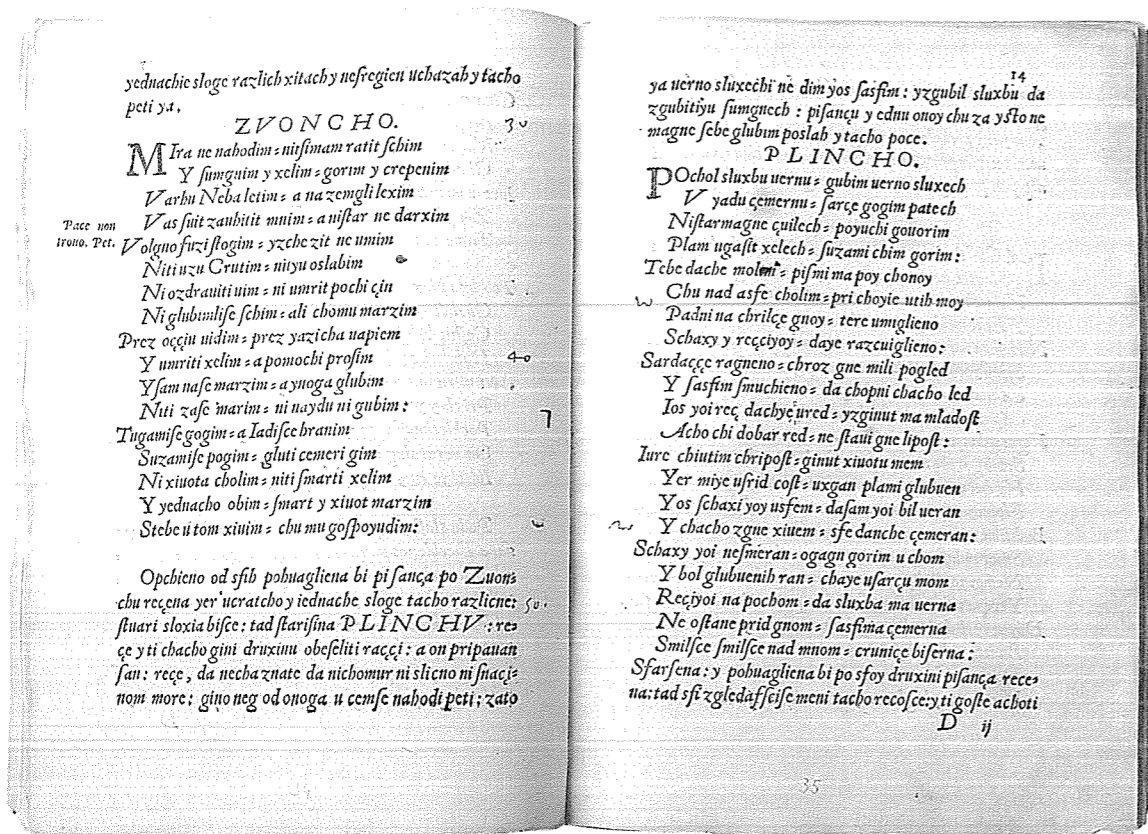 yednachie sloge razlich xitach y nesregien uchazah y tacho
peti ya.
ZVONCHO.
30
MIra ne nahodim: niſimam ratit ſchim
Y ſumgnim y xelim: gorim y crepenim
Varhu Neba letim: a na zemgli lexim
Vas ſuit zauhitit mnim: a niſtar ne darxim
Pace non
trouo. Pet.
Volgno ſuzi ſtogim: yzche zit ne umim
Niti uzu Crutim: nityu oslabim
Ni ozdrauiti uim: ni umrit pochi çin
Ni glubimliſe ſchim: ali chomu marzim
Prez oççiu uidim: prez yazicha uapiem
Y umriti xelim: a pomochi proſim
40
Yſam naſe marzim: a ynoga glubim
Niti zaſe marim: ni naydu ni gubim:
Tugamiſe gogim: a Iadiſce hranim
Suzamiſe pogim: gluti cemeri gim
Ni xiuota cholim: niti ſmarti xelim
Y yednacho obim: ſmart y xiuot marzim
Stebe u tom xiuim: chu mu goſpoyudim:
Opchieno od sſih pohuagliena bi piſança po Zuon:
chu reçena yer ucratcho y iednache sloge tacho razlicne:
50.
ſtuari sloxia biſce: tad ſtariſina PLINCHV: re:
çe y ti chacho gini druxinu obeſeliti raççi: a on pripauan
ſan: reçe, da necha znate da nichomur ni slicno ni ſnaçi:
nom more: gino neg od onoga u cemſe nahodi peti: zato
14
ya uerno sluxechi ne dim yos ſasſim: yzgubil sluxbu da
zgubitiyu ſumgnech: piſançu y ednu onoy chu za yſto ne
magne ſebe glubim poslah y tacho poce.
PLINCHO.
POchol sluxbu uernu: gubim uerno sluxech
V yadu çemernu: ſarçe gogim patech
Niſtarmagne çuilech: poyuchi gouorim
Plam ugaſit xelech: ſuzami chim gorim:
Tebe dache molmi: piſmi ma poy chonoy
Chu nad asſe cholim: pri choyie utih moy
Padni na chrilçe gnoy: tere umiglieno
Schaxy y reççiyoy: daye razcuiglieno:
Sardaççe ragneno: chroz gne mili pogled
Y ſasſim ſmuchieno: da chopni chacho led
Ios yoi reç dachye ured: yzginut ma mladoſt
Acho chi dobar red: ne ſtaui gne lipoſt:
Iure chiutim chripoſt: ginut xiuotu mem
Yer miye uſrid coſt: uxgan plami glubuen
Yos ſchaxi yoy usſem: daſam yoi bil ueran
Y chacho zgne xiuem: sſe danche çemeran:
Schaxy yoi neſmeran: ogagn gorim u chom
Y bol glubuenih ran: chaye uſarçu mom
Reçiyoi na pochom: da sluxba ma uerna
Ne oſtane prid gnom: ſasſima çemerna
Smilſce ſmilſce nad mnom: cruniçe biſerna:
Sfarſena: y pohuagliena bi po sſoy druxini piſança rece:
na: tad sſi zgledaſſciſe meni tacho recoſce: y ti goſte achoti
D ij
35